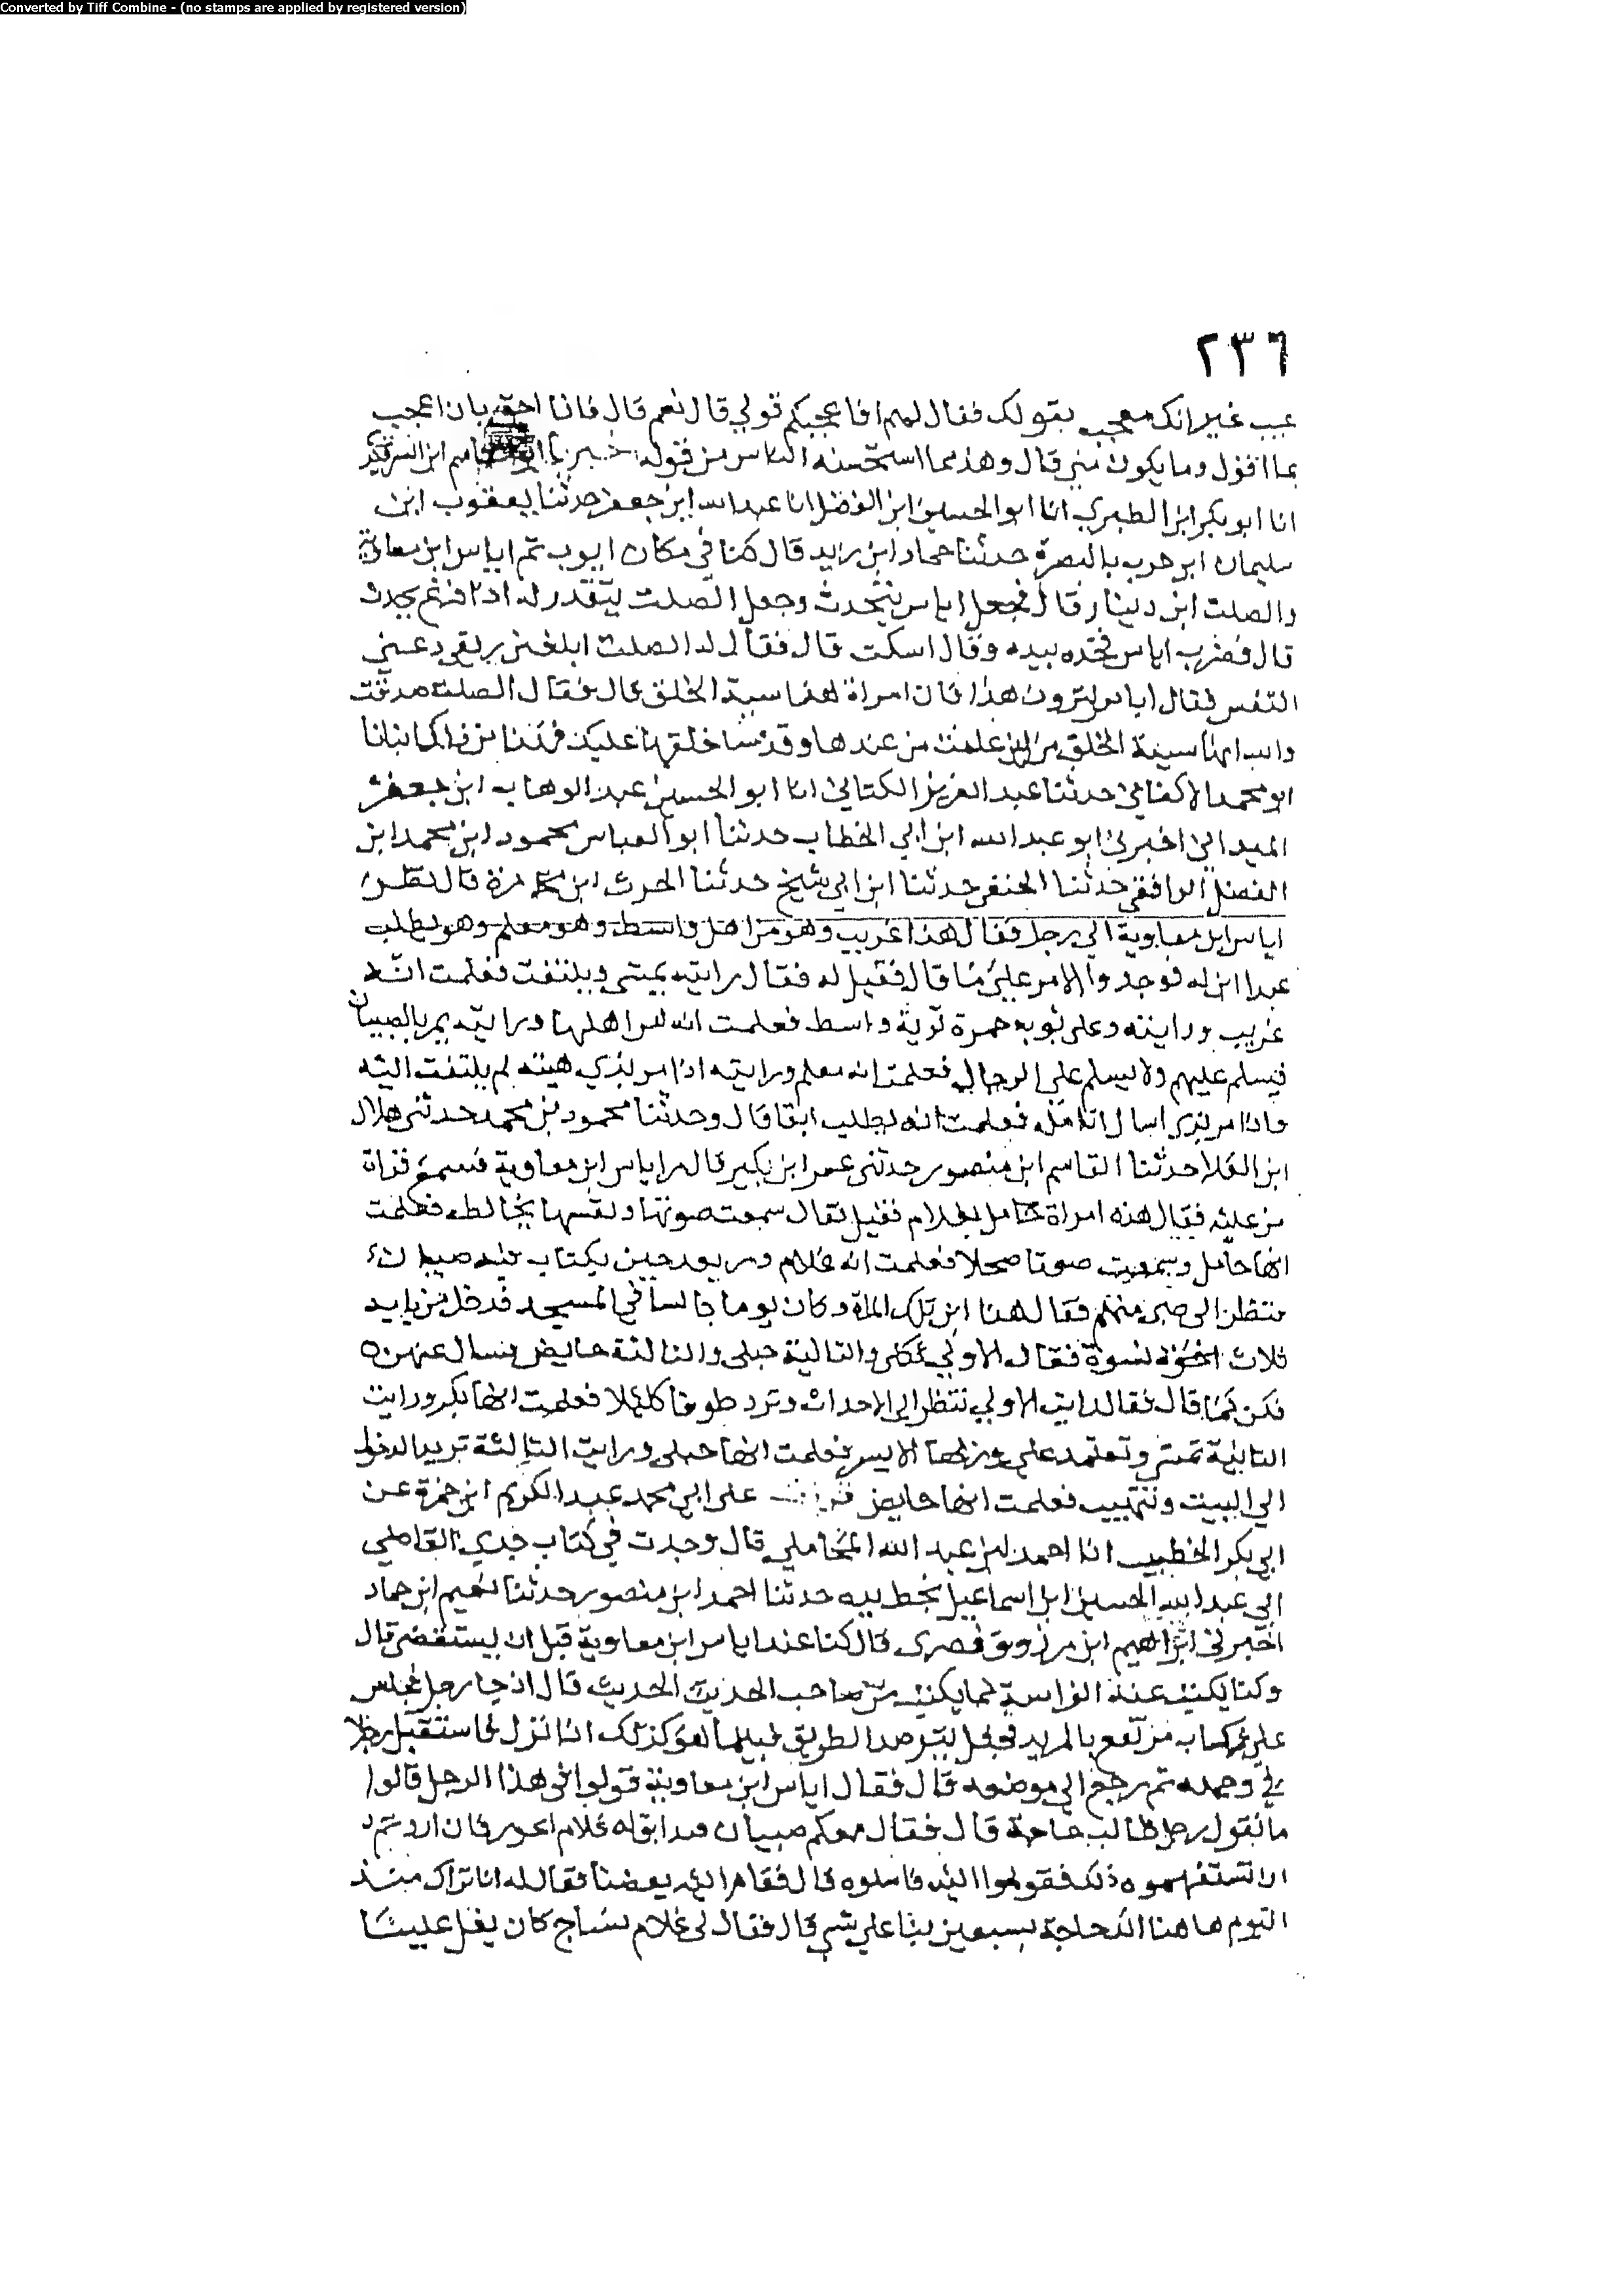 Converted by Tiff Combine - (no stamps are applied by registered version)
٢٣٦
عيب غير انك معجب بقولك فقال لهم افاعجبكم قولي قال نعم قال فانا احق بان اعجب
بما اقول وما يكون مني قال وهذا مما استحسنه الناس من قوله اخبرنا ابو القاسم ابن السمرقندي
انا ابو بكر ابن الطبري انا ابو الحسين ابن الفضل انا عبد الله ابن جعفر حدثنا يعقوب ابن
سليمان ابن حرب بالبصرة حدثنا حماد ابن زايد قال كنا في مكان ايوب ثم اياس ابن معاوية
والصلت ابن دينار قال فجعل اياس يتحدث وجعل الصلت يتقدر له اذا فهم يحدث
قال فضرب اياس فخذه بيده وقال اسكت قال فقال له الصلت ابلغني ريقي دعني
التفس فقال اياس ترون هذا فان امراة هذا سيئة الخلق قال فقال الصلت صدقت
والله انها سيئة الخلق من اين علمت من عندها وقد شا خلقها عليك فمن ذاك انبانا
ابو محمد الاكفاني حدثنا عبد العزيز الكتاني انا ابو الحسين عبد الوهاب ابن جعفر
الميداني اخبرني ابو عبد الله ابن ابي الخطاب حدثنا ابو العباس محمود ابن محمد ابن
الفضل الرافقي حدثنا الحنفي حدثنا ابن ابي شيخ حدثنا الحرث ابن مرة قال نظر
اياس ابن معاوية الي رجل فقال هذا غريب وهو من اهل واسط وهو معلم وهو يطلب
عبدا ابق له فوجدوا الامر علي ما قال فقيل له فقال رايته يمشي ويلتفت فعلمت انه
غريب ورايته وعلى ثوبه حمرة تربة واسط فعلمت انه من اهلها ورايته يمر بالصبيان
فيسلم عليهم ولا يسلم على الرجال فعلمت انه معلم ورايته اذا مر بذي هيئة لم يلتفت اليه
واذا مر بذي اسال تامله فعلمت انه يطلب ابقا قال وحدثنا محمود بن محمد حدثني هلال
ابن العلا حدثنا القاسم ابن منصور حدثني عمر ابن بكير قال مر اياس ابن معاوية فسمع قراة
من علية فقال هذه امراة حامل بغلام فقيل فقال سمعت صوتها ونفسها يخالطه فعلمت
انها حامل وسمعت صوتا صحلا فعلمت انه غلام ومر بعد حين بكتاب فيه صبيان
فنظر الى صبي منهم فقال هذا ابن تلك المراة وكان يوما جالسا في المسجد فدخل من بابه
ثلاث نسوة فقال الاولي والثانية حبلى والثالثة حايض فسال عنهن
فكن كما قال فقال رايت الاولي تنظر الى الاحداث وترد طرفا كليلا فعلمت انها بكر ورايت
الثانية تمشي وتعتمد على وركها الايسر فعلمت انها حبلى ورايت الثالثة تريد الدخول
الي البيت وتتهيب فعلمت انها حايض قرات على ابي محمد عبد الكريم ابن حمزة عن
ابي بكر الخطيب انا احمد ابن عبد الله المحاملي قال وجدت في كتاب جدي القاضي
ابي عبد الله الحسين ابن اسماعيل بخط يده حدثنا احمد ابن منصور حدثنا نعيم ابن حماد
اخبرني ابراهيم ابن مرزوق بصرى قال كنا عند اياس ابن معاوية قبل ان يستقضى قال
وكنا نكتب عنه الفراسة كما يكتب من صاحب الحديث الحديث قال اذ جا رجل فجلس
على دكان مرتفع بالمربد فجعل يترصد الطريق فبينما هو كذلك اذ نزل فاستقبل رجلا
في وجهه ثم رجع الي موضعه قال فقال اياس ابن معاوية قولوا في هذا الرجل قالوا
ما نقول رجل طالب حاجة قال فقال معلم صبيان قد ابق له غلام اعور فان اردتم
ان تستفهموه ذلك فقوموا اليه فاسلوه قال فقام اليه بعضنا فقال له انا نراك منذ
اليوم هاهنا الك حاجة تستعين بنا على شي قال فقال لي غلام نساج كان يغل علينا